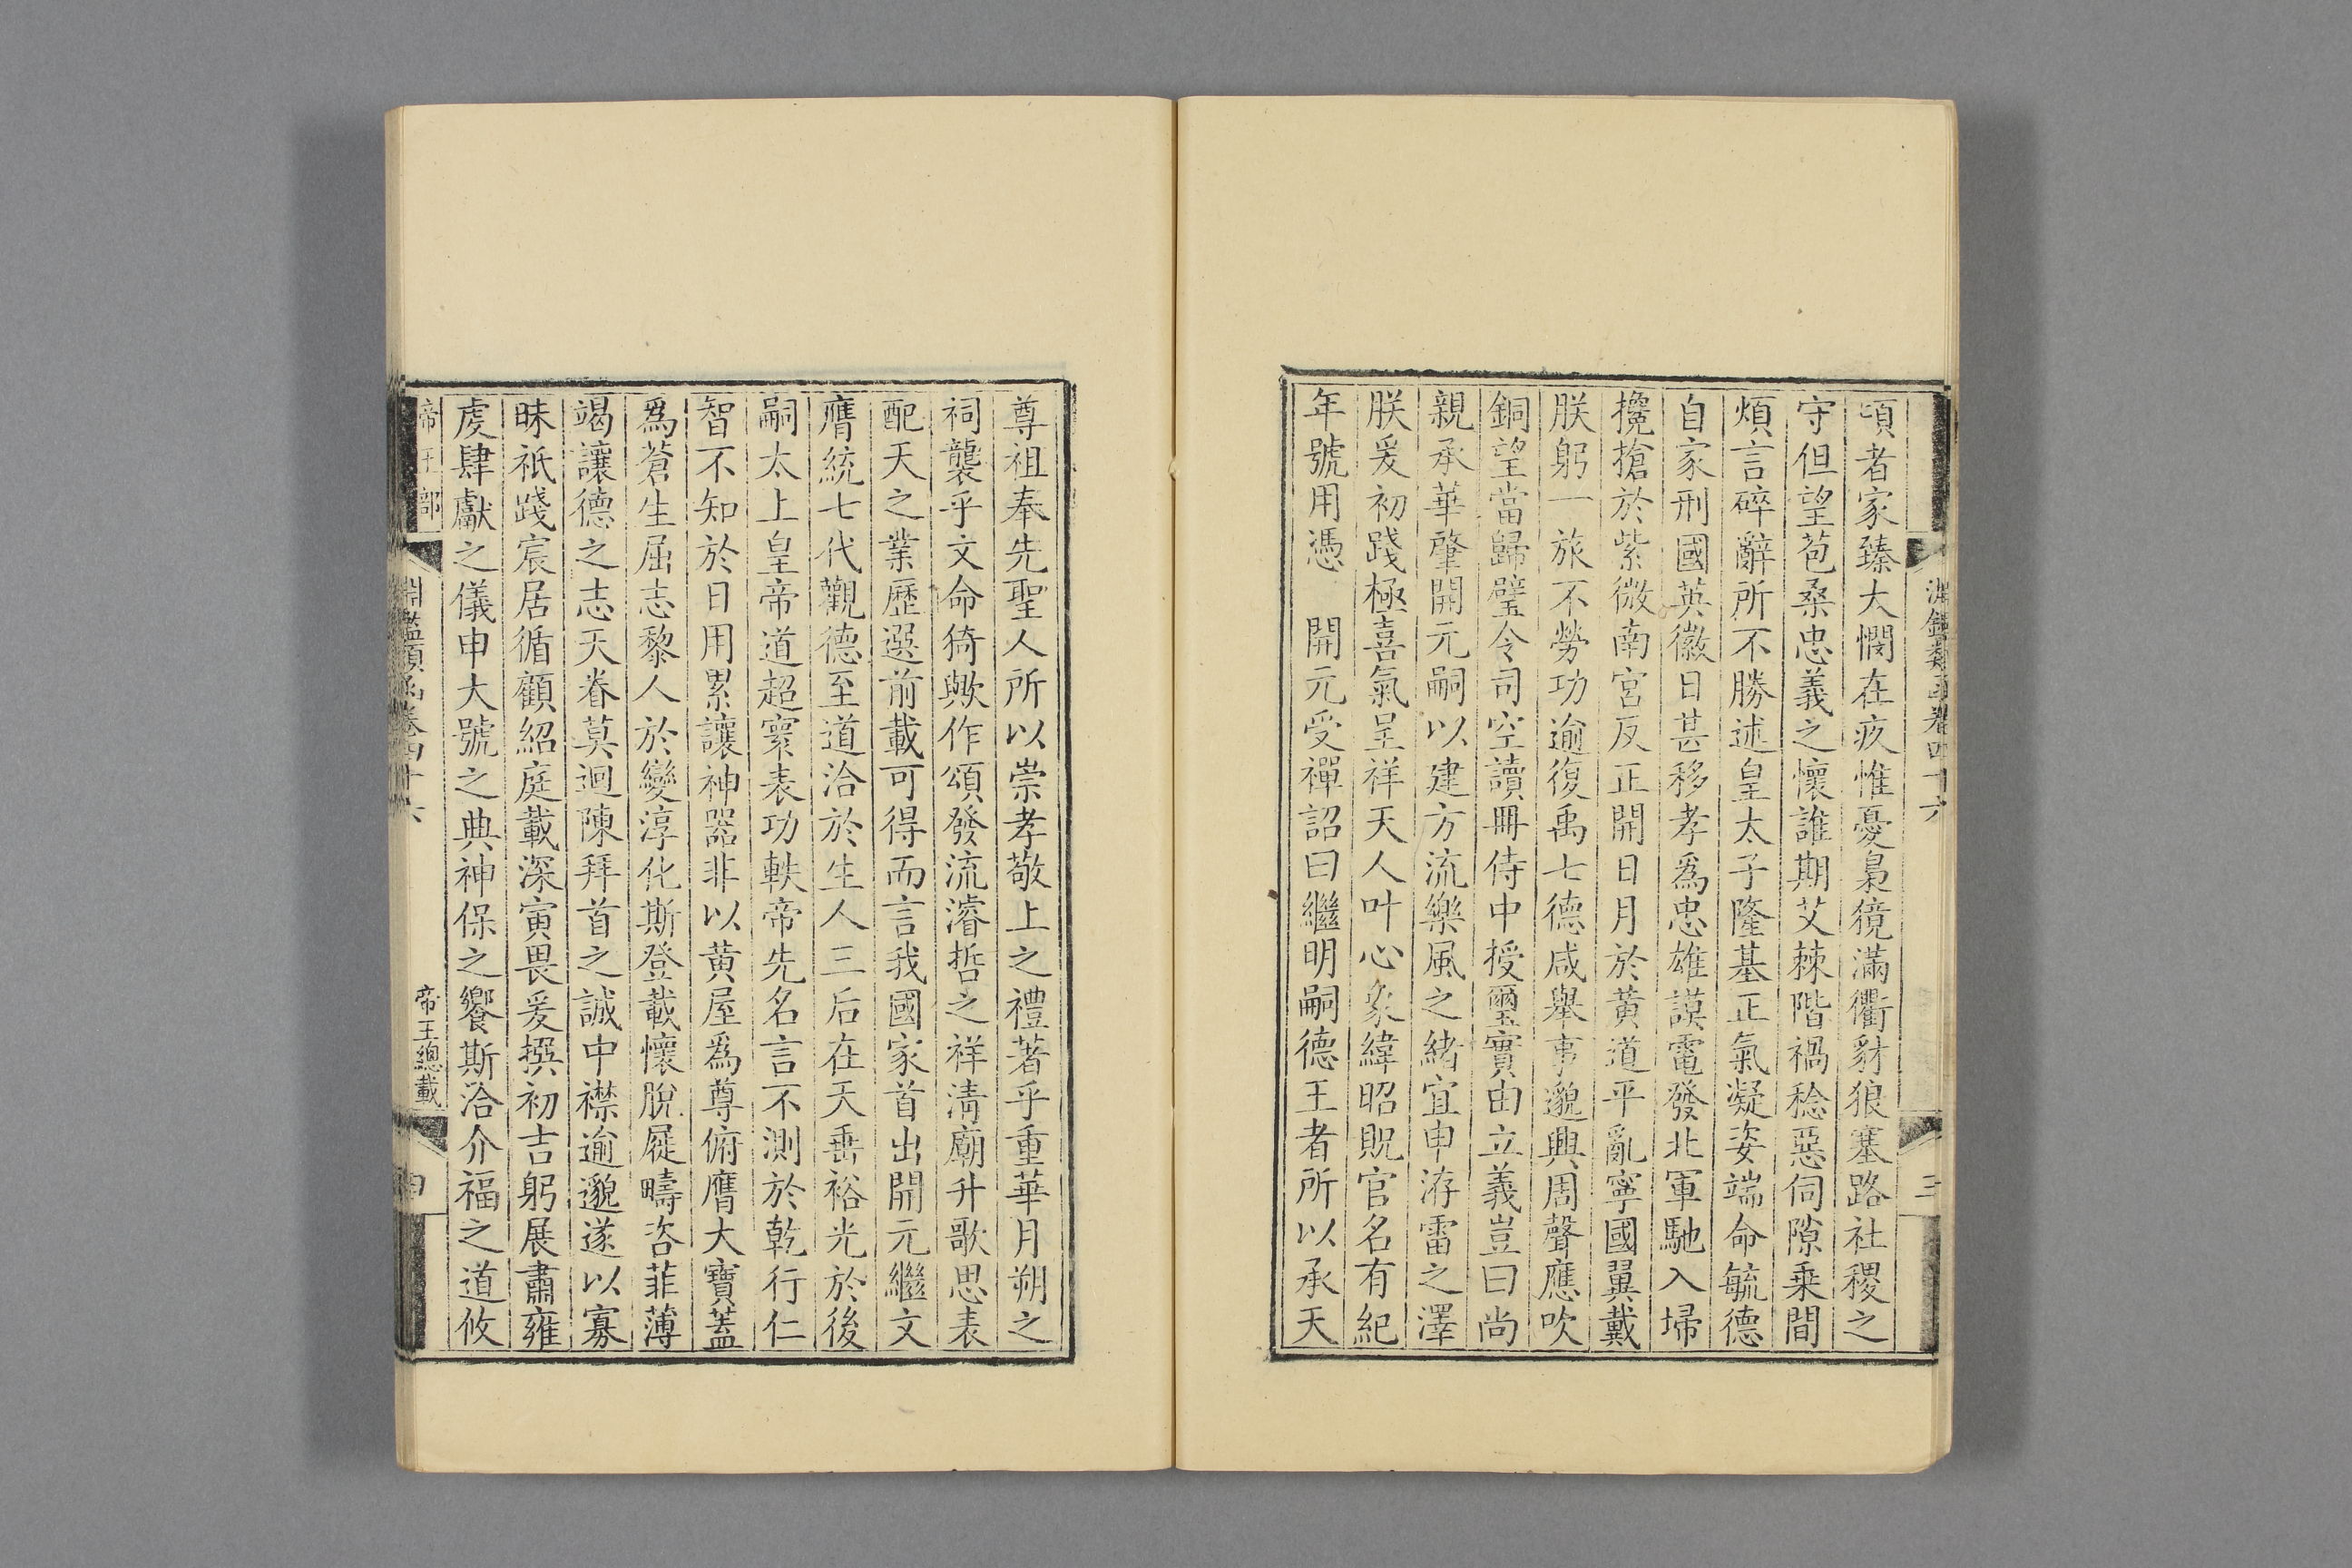 淵鑑類函卷四十六
三
頃者家臻大憫在疚惟憂梟獍滿衢豺狼塞路社稷之
守但望苞桑忠義之懷誰期艾棘階禍稔惡伺隙乗間
煩言碎辭所不勝述皇太子隆基正氣凝姿端命毓德
自家刑國英徽日甚移孝爲忠雄謨電發北軍馳入埽
攙搶於紫微南宮反正開日月於黃道平亂寧國翼戴
朕躬一旅不勞功逾復禹七德咸舉事邈興周聲應吹
銅望當歸璧令司空讀冊侍中授璽實由立義豈曰尚
親承華肇開元嗣以建方流樂風之緒宜申洊雷之澤
朕爰初踐極喜氣呈祥天人叶心象緯昭貺官名有紀
年號用憑　開元受禪詔曰繼明嗣德王者所以承天
尊祖奉先聖人所以崇孝敬上之禮著乎重華月朔之
祠襲乎文命猗歟作頌發流濬哲之祥清廟升歌思表
配天之業歷選前載可得而言我國家首出開元繼文
膺統七代觀德至道洽於生人三后在天垂裕光於後
嗣太上皇帝道超寰表功軼帝先名言不測於乾行仁
智不知於日用累讓神器非以黃屋爲尊俯膺大寶蓋
爲蒼生屈志黎人於變淳化斯登載懷脫屣疇咨菲薄
竭讓德之志天眷莫迴陳拜首之誠中襟逾邈遂以寡
昧祇踐宸居循顧紹庭載深寅畏爰撰初吉躬展肅雍
虔肆獻之儀申大號之典神保之饗斯洽介福之道攸
帝王部
淵鑑類函卷四十六
帝王總載
四